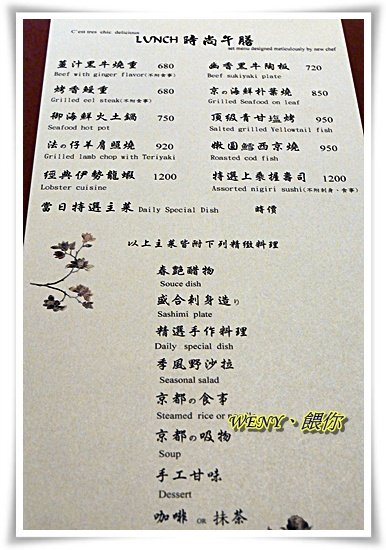 C'est tres chic delicious
LUNCH 時尚午膳
set menu designed meticulously by new chef
薑汁黑牛燒重 680
Beef with ginger flavor(不附食事)
幽香黑牛陶板 720
Beef sukiyaki plate
烤香鰻重 680
Grilled eel steak(不附食事)
京の海鮮朴葉燒 850
Grilled Seafood on leaf
御海鮮火土鍋 750
Seafood hot pot
頂級青甘塩烤 950
Salted grilled Yellowtail fish
法の仔羊肩照燒 920
Grilled lamb chop with Teriyaki
嫩圓鱈西京燒 950
Roasted cod fish
經典伊勢龍蝦 1200
Lobster cuisine
特選上乘握壽司 1200
Assorted nigiri sushi(不附刺身、食事)
當日特選主菜 Daily Special Dish 時價
以上主菜皆附下列精緻料理
春艷醋物
Souce dish
盛合刺身造り
Sashimi plate
精選手作料理
Daily special dish
季風野沙拉
Seasonal salad
京都の食事
Steamed rice or
京都の吸物
Soup
手工甘味
Dessert
咖啡 OR 抹茶
WENY、餵你